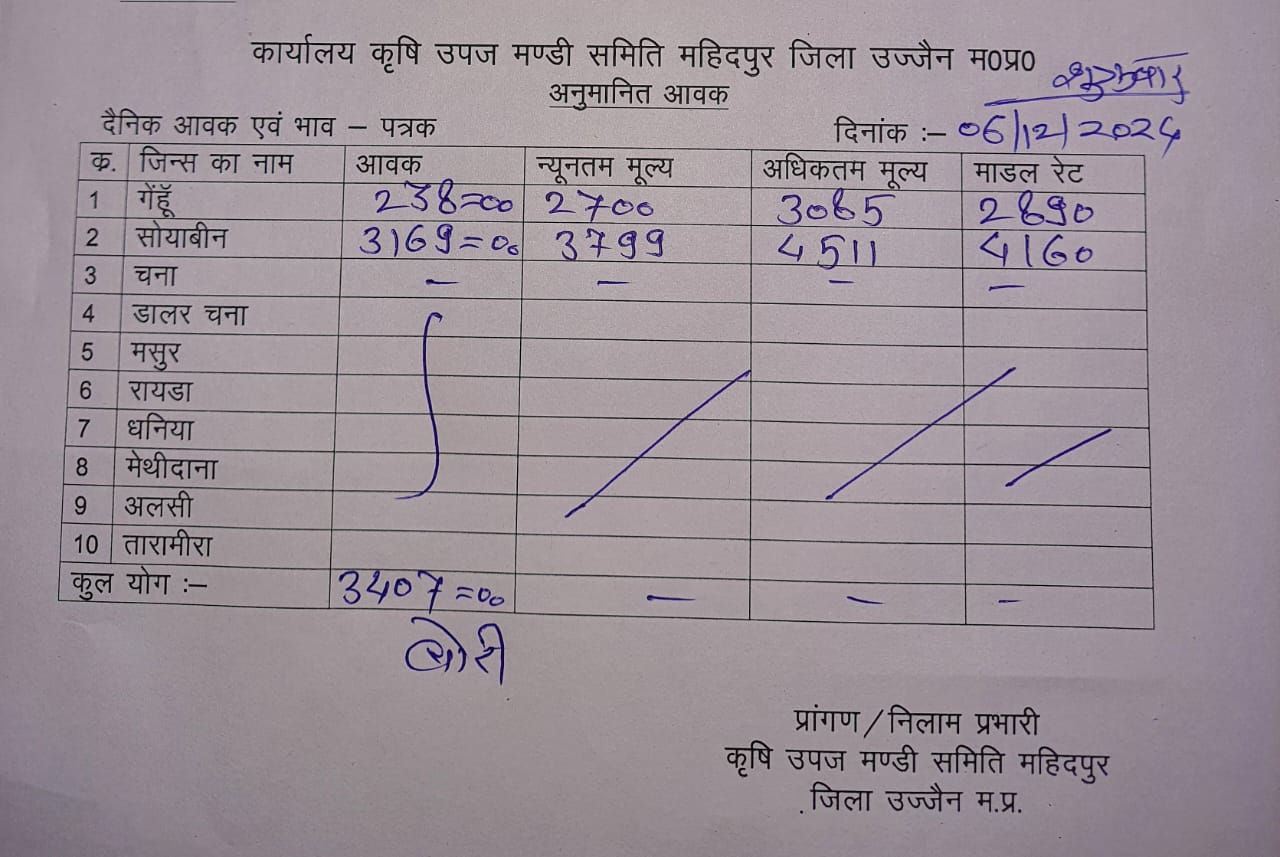 कार्यालय कृषि उपज मण्डी समिति महिदपुर जिला उज्जैन म0प्र0
शुक्रवार
अनुमानित आवक
दैनिक आवक एवं भाव – पत्रक दिनांक :– 06/12/2024
क्र. जिन्स का नाम आवक न्यूनतम मूल्य अधिकतम मूल्य माडल रेट
1 गेंहूॅ 238=00 2700 3085 2890
2 सोयाबीन 3169=00 3799 4511 4160
3 चना – – – –
4 डालर चना
5 मसुर
6 रायडा
7 धनिया
8 मेथीदाना
9 अलसी
10 तारामीरा
कुल योग :– 3407=00 – – –
बोरी
प्रांगण / निलाम प्रभारी
कृषि उपज मण्डी समिति महिदपुर
जिला उज्जैन म.प्र.